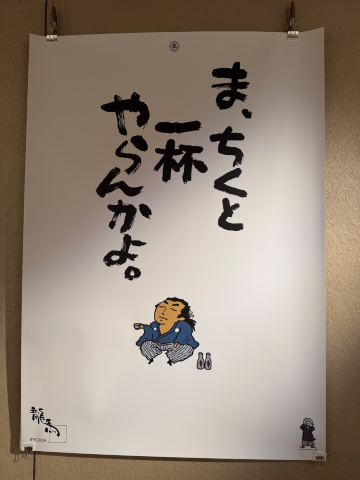 ま、ちくと
一杯
やらんかよ。
龍馬
RYOMA